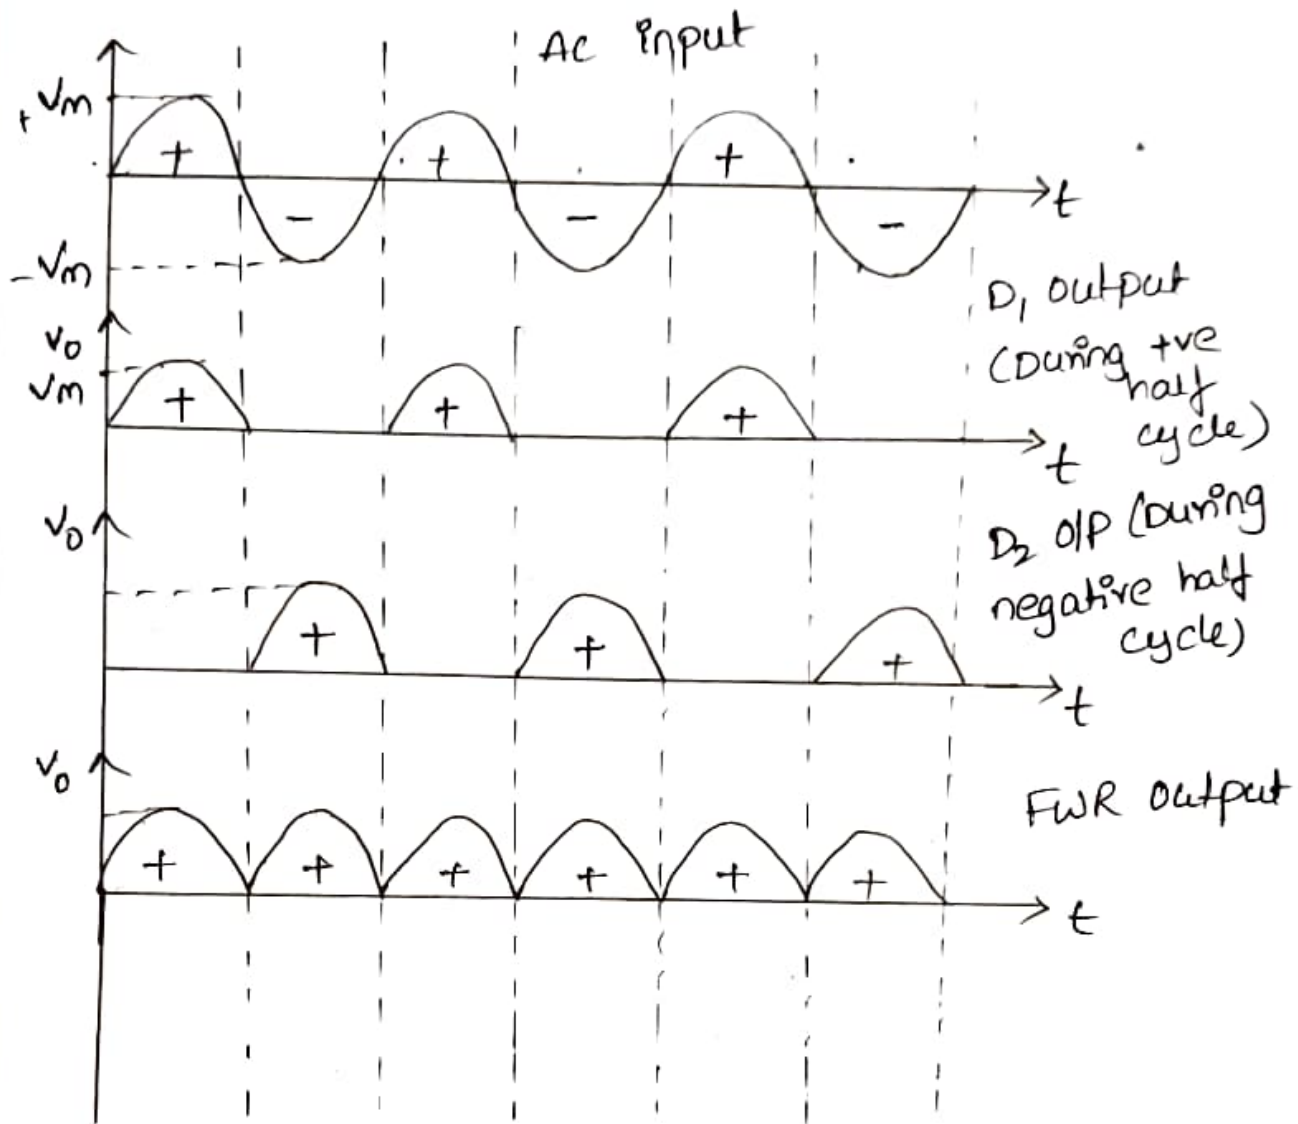 AC input
+Vm
+
+
+
-
-
-
t
-Vm
D1 output
(During +ve
half
cycle)
Vo
Vm
+
+
+
t
Vo
D2 O/P (During
negative half
cycle)
+
+
+
t
Vo
FWR output
+
+
+
+
+
+
t